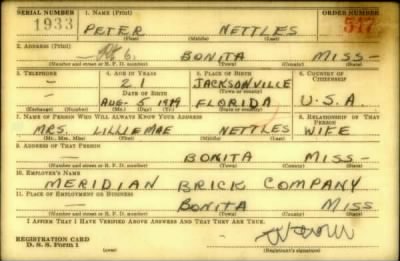 SERIAL NUMBER 1. NAME (Print) ORDER NUMBER
1933 PETER NETTLES 517
(First) (Middle) (Last)
2. ADDRESS (Print)
Rt 6. BONITA MISS-
(Number and street or R. F. D. number) (Town) (County) (State)
3. TELEPHONE 4. AGE IN YEARS 5. PLACE OF BIRTH 6. COUNTRY OF CITIZENSHIP
- 21 JACKSONVILLE
DATE OF BIRTH (Town or county)
- AUG- 5 1919 FLORIDA U.S.A.
(Exchange) (Number) (Mo.) (Day) (Yr.) (State or country)
7. NAME OF PERSON WHO WILL ALWAYS KNOW YOUR ADDRESS 8. RELATIONSHIP OF THAT PERSON
MRS. LILLIEMAE NETTLES WIFE
(Mr., Mrs., Miss) (First) (Middle) (Last)
9. ADDRESS OF THAT PERSON
— BONITA MISS-
(Number and street or R. F. D. number) (Town) (County) (State)
10. EMPLOYER'S NAME
MERIDIAN BRICK COMPANY
11. PLACE OF EMPLOYMENT OR BUSINESS
— BONITA MISS
(Number and street or R. F. D. number) (Town) (County) (State)
I AFFIRM THAT I HAVE VERIFIED ABOVE ANSWERS AND THAT THEY ARE TRUE.
REGISTRATION CARD
D. S. S. Form 1 (over) (Registrant's signature)